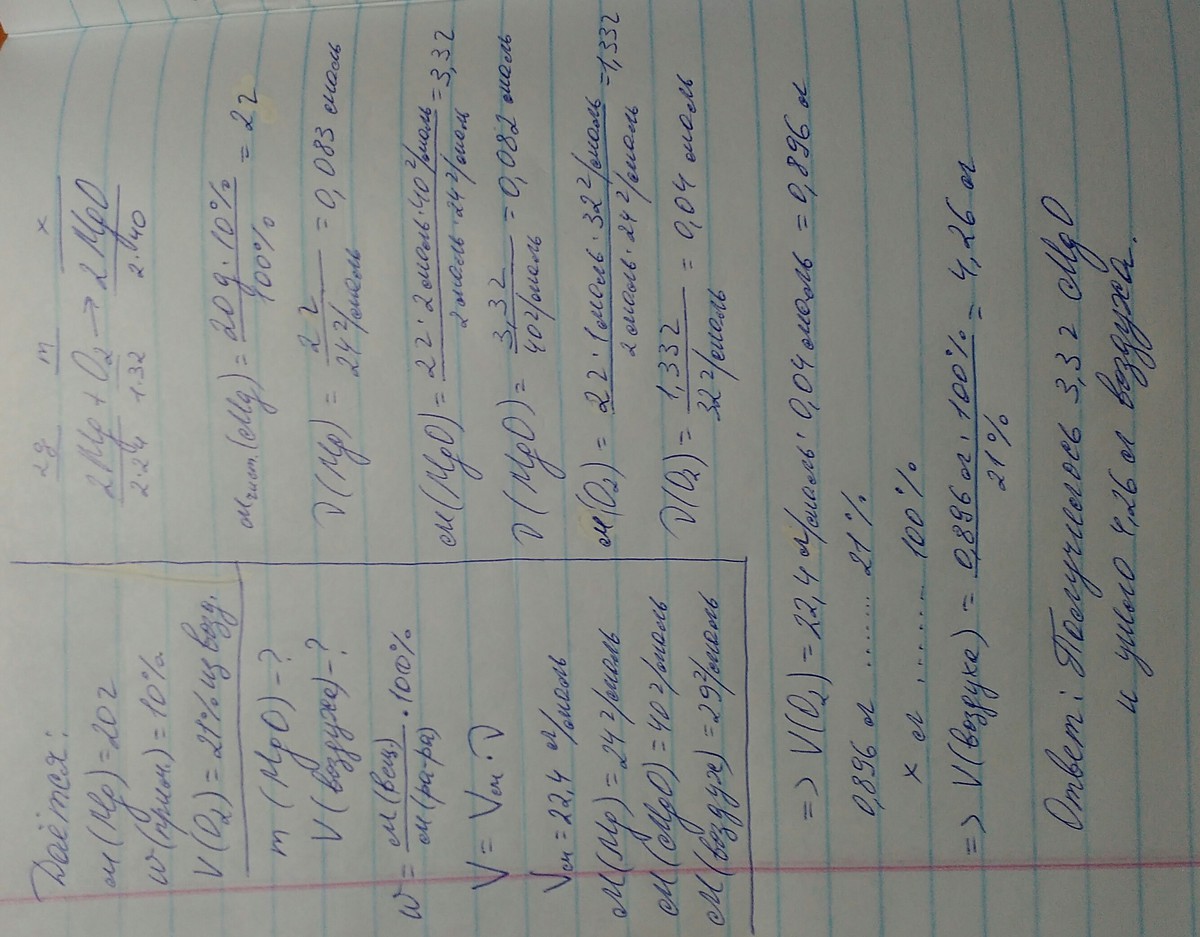 Даётся:
m(Mg) = 20 г
W(прим.) = 10%
V(O₂) = 21% из возд.
m(MgO) - ?
V(воздуха) - ?
W = m(вещ) / m(ра-ра) · 100%
V = Vm · ν
Vm = 22,4 л/моль
M(Mg) = 24 г/моль
M(MgO) = 40 г/моль
M(воздух) = 29 г/моль
2g m x
2Mg + O₂ → 2MgO
2·24 1·32 2·40
m чист.(Mg) = 20g · 10% / 100% = 2г
ν(Mg) = 2г / 24 г/моль = 0,083 моль
m(MgO) = 2г · 2моль · 40 г/моль / 2моль · 24 г/моль = 3,3г
ν(MgO) = 3,3г / 40 г/моль = 0,082 моль
m(O₂) = 2г · 1моль · 32 г/моль / 2моль · 24 г/моль = 1,33г
ν(O₂) = 1,33г / 32 г/моль = 0,04 моль
=> V(O₂) = 22,4 л/моль · 0,04 моль = 0,896 л
0,896 л ........ 21%
x л ........ 100%
=> V(воздуха) = 0,896 л · 100% / 21% = 4,26 л
Ответ: Получилось 3,3г MgO
и ушло 4,26 л воздуха.